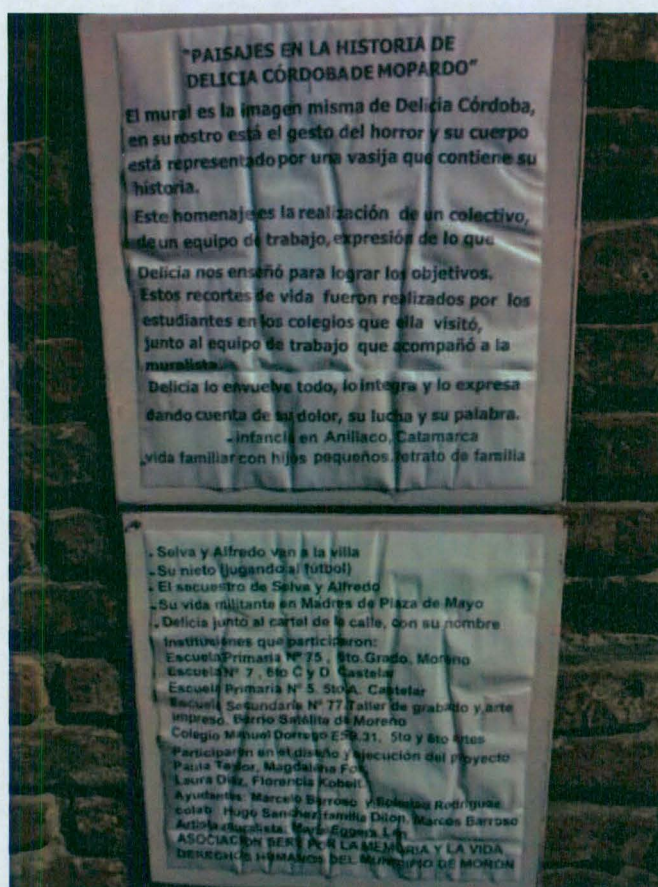 "PAISAJES EN LA HISTORIA DE
DELICIA CÓRDOBA DE MOPARDO"
El mural es la imagen misma de Delicia Córdoba,
en su rostro está el gesto del horror y su cuerpo
está representado por una vasija que contiene su
historia.
Este homenaje es la realización de un colectivo,
de un equipo de trabajo, expresión de lo que
Delicia nos enseñó para lograr los objetivos.
Estos recortes de vida fueron realizados por los
estudiantes en los colegios que ella visitó,
junto al equipo de trabajo que acompañó a la
muralista.
Delicia lo envuelve todo, lo integra y lo expresa
dando cuenta de su dolor, su lucha y su palabra.
-infancia en Anillaco, Catamarca
vida familiar con hijos pequeños. retrato de familia
. Selva y Alfredo van a la villa
. Su nieto (jugando al fútbol)
. El secuestro de Selva y Alfredo
. Su vida militante en Madres de Plaza de Mayo
. Delicia junto al cartel de la calle, con su nombre
Instituciones que participaron:
Escuela Primaria Nº 75, 6to. Grado, Moreno
Escuela Nº 7, 6to C y D Castelar
Escuela Primaria Nº 5, 5to A. Castelar
Escuela Secundaria Nº 77 Taller de grabado y arte
impreso. Barrio Satélite de Moreno
Colegio Manuel Dorrego ESB.31, 5to y 6to Artes
Participaron en el diseño y ejecución del proyecto
Paula Taylor, Magdalena
Laura Díaz, Florencia
Ayudantes: Marcelo Barroso y Soledad Rodríguez
colab. Hugo Sanchez, familia Dilon, Marcos Barroso
Artista muralista: María Eggers Lan
ASOCIACION SERE POR LA MEMORIA Y LA VIDA
DERECHOS HUMANOS DEL MUNICIPIO DE MORÓN